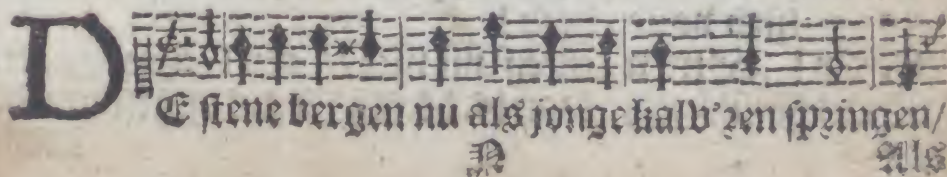 DE ſtene bergen nu als jonge kalv'ren ſpringen/
N Als